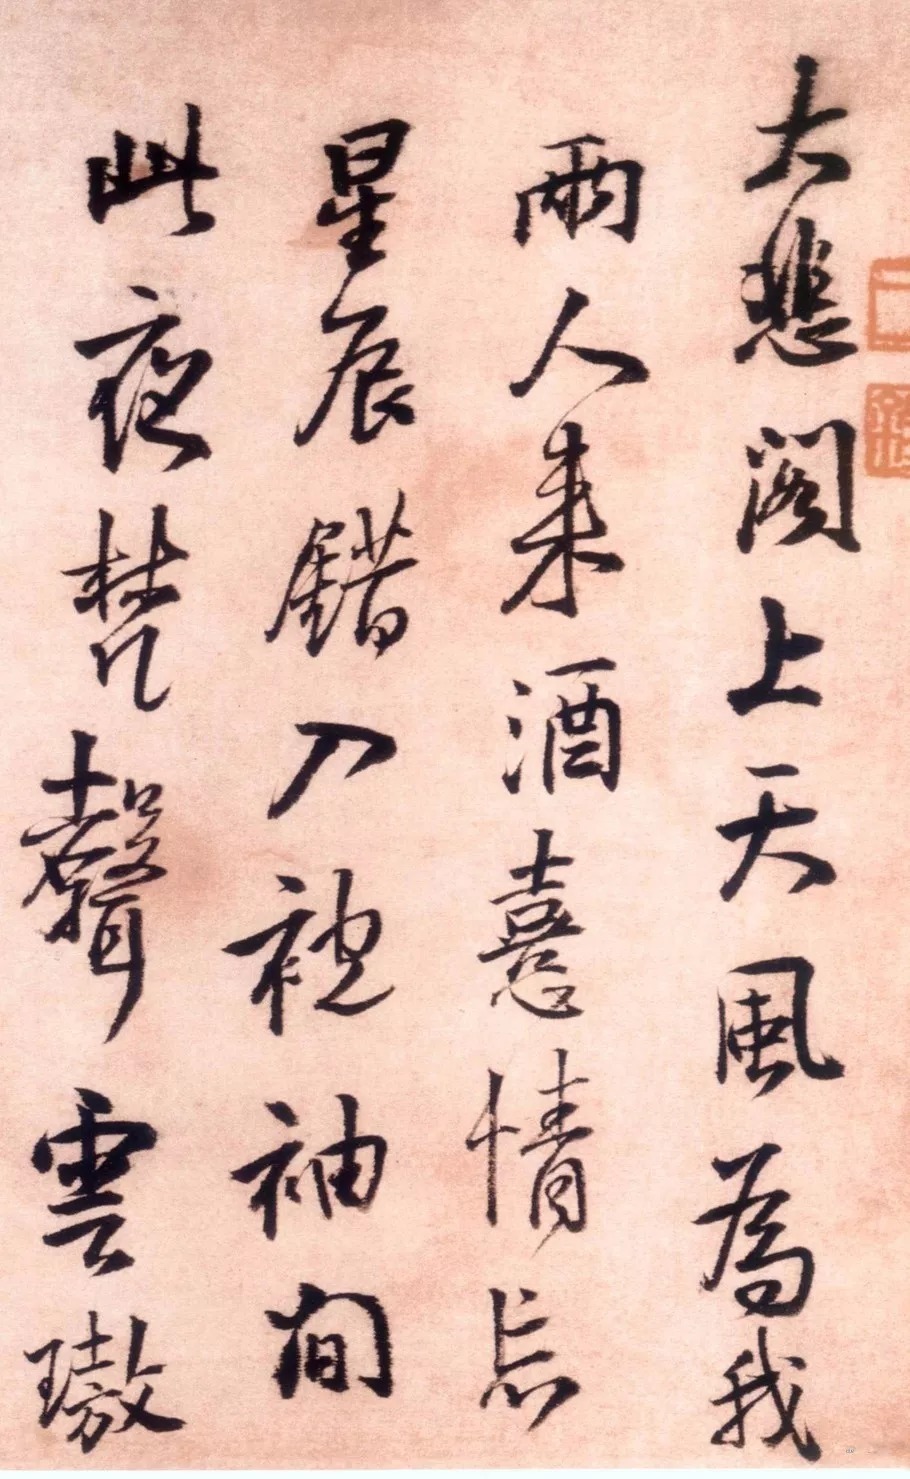 大悲閣上天風為我
兩人来酒憙情忘
星辰錯入袍袖間
此夜梵聲雲璈